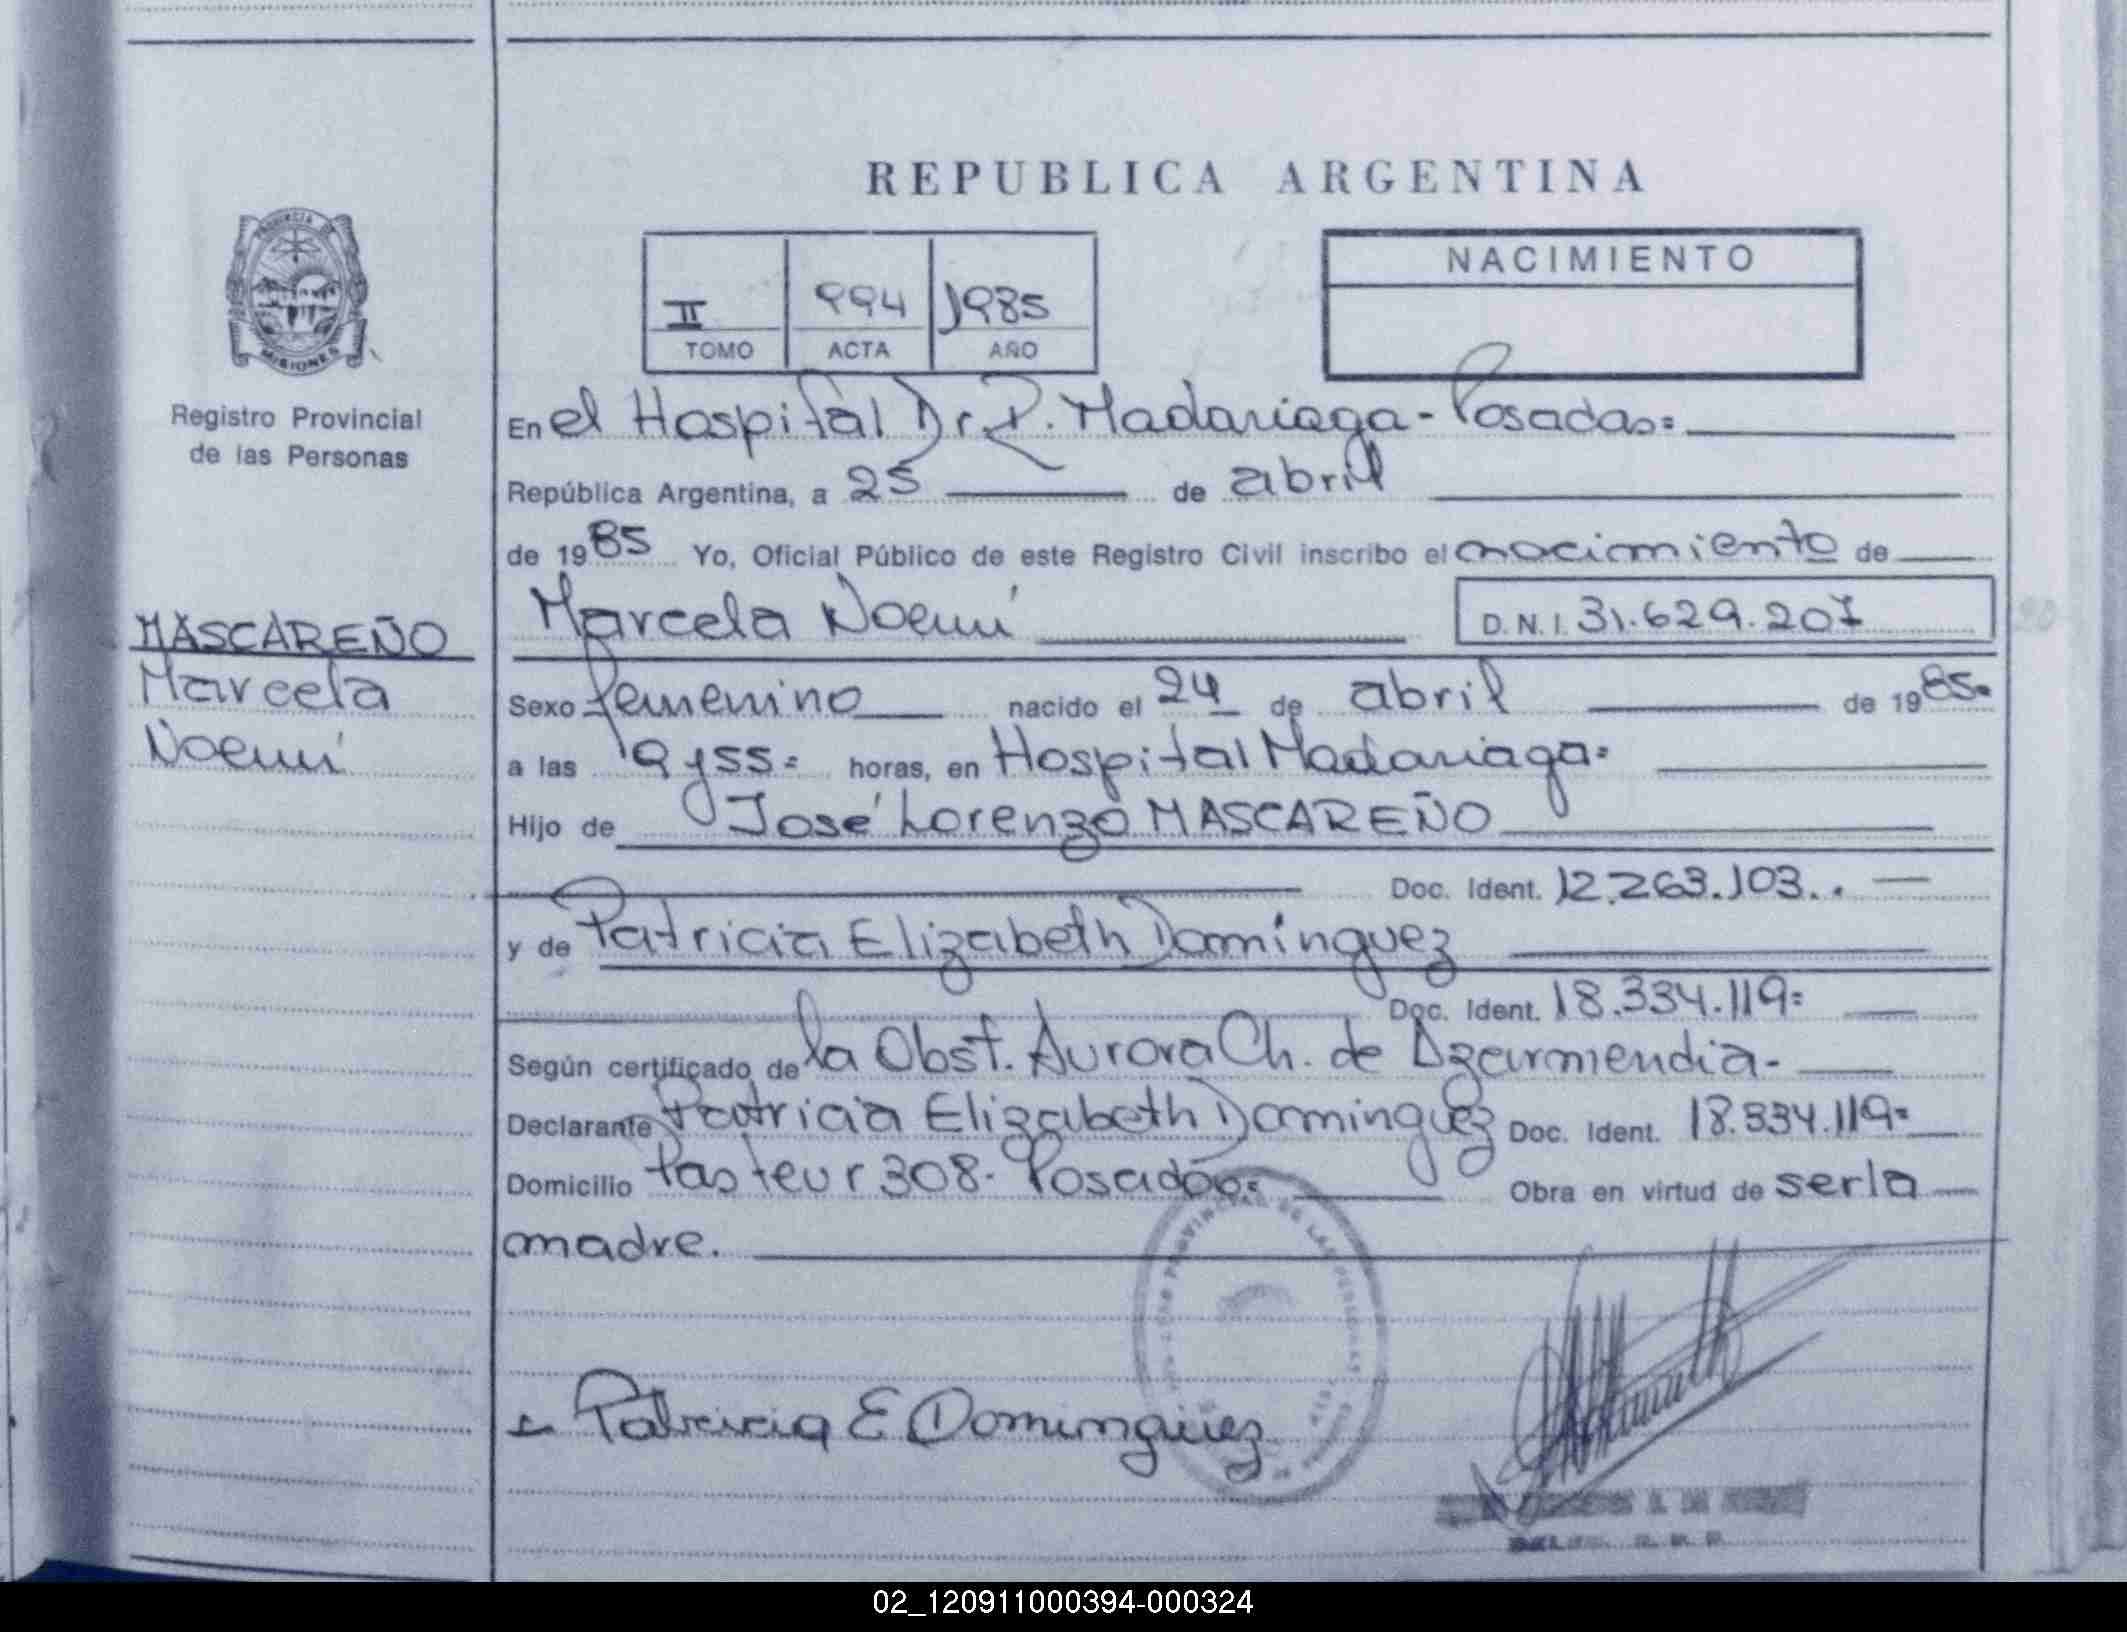 REPUBLICA ARGENTINA
II 994 1985
TOMO ACTA AÑO
NACIMIENTO
PROVINCIA DE
MISIONES
Registro Provincial
de las Personas
MASCAREÑO
Marcela
Noemí
En el Hospital Dr. R. Madariaga - Posadas=
República Argentina, a 25 de abril
de 1985 Yo, Oficial Público de este Registro Civil inscribo el nacimiento de
Marcela Noemí D.N.I. 31.629.207
Sexo femenino nacido el 24 de abril de 1985=
a las 19 y 55= horas, en Hospital Madariaga=
Hijo de José Lorenzo MASCAREÑO
Doc. Ident. 12.263.103..
y de Patricia Elizabeth Domínguez
Doc. Ident. 18.334.119=
Según certificado de la Obst. Aurora Ch. de
Declarante Patricia Elizabeth Dominguez Doc. Ident. 18.334.119=
Domicilio Pasteur 308- Posadas= Obra en virtud de ser la
madre.
PROVINCIAL DE LAS PERSONAS
Patricia E Dominguez
02_120911000394-000324